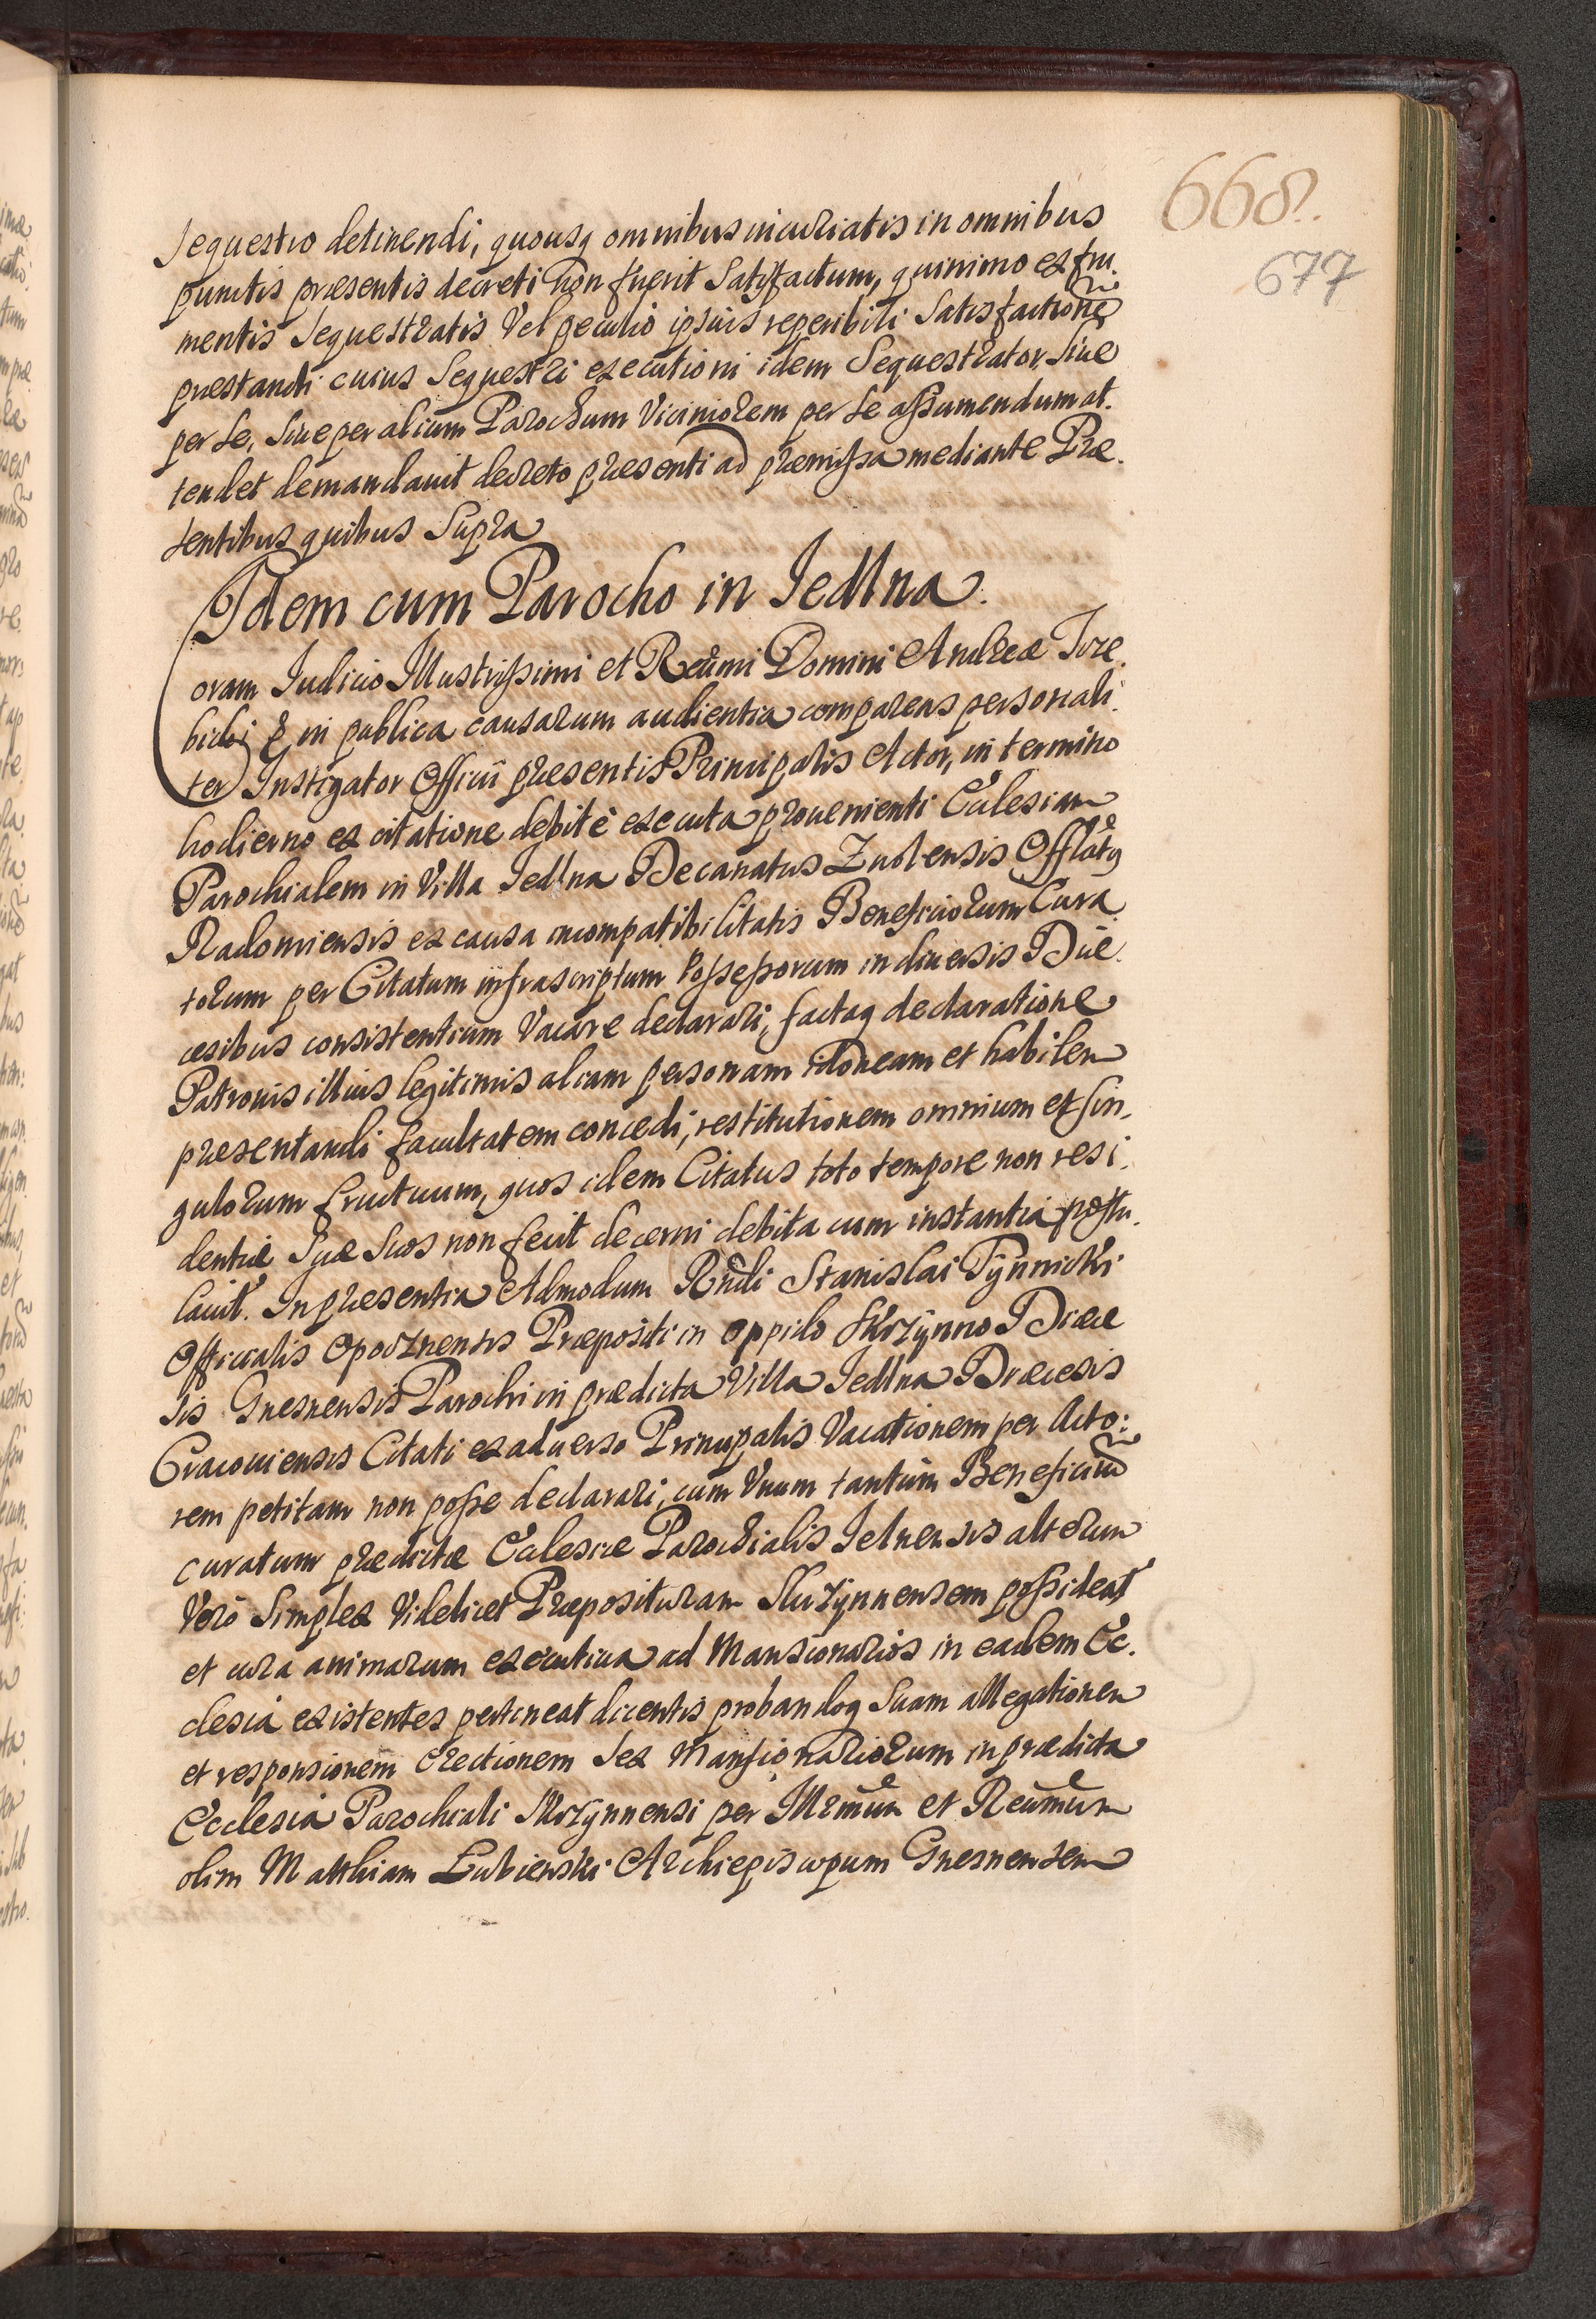 668.
677
sequestro detinendi, quousq omnibus iniuriatis in omnibus
punctis præsentis decreti non fuerit satisfactum, quinimo ex fru.
mentis sequestratis vel peculio ipsius reperibili satisfactione
præstandi cuius sequestri executioni idem Sequestrator, siue
per se, siue per alium Parochum Viciniorem per se assumendum at.
tendet demandauit decreto præsenti ad præmissa mediante Præ.
sentibus quibus supra
Idem cum Parocho in Jedlna.
Coram Judicio Illustrissimi et Reũmi Domini Andreæ Trze.
bicki & in publica causarum audientia comparens personali.
ter Instigator Officii præsentis Principalis Actor, in termino
hodierno ex citatione debitè executa prouenienti Ecclesiam
Parochialem in Villa Jedlna Decanatus Zuolensis Offlãtq
Radomiensis ex causa incompatibilitatis Beneficiorum Cura.
torum per Citatum infrascriptum Possessorum in diuersis Diæ.
cesibus consistentium Vacare declarari, factaq declaratione
Patronis illius legitimis aliam personam idoneam et habilem
præsentandi facultatem concedi, restitutionem omnium et sin.
gulorum fructuum, quos idem Citatus toto tempore non resi.
dentiæ suæ suos non fecit decerni debita cum instantia postu.
lauit. In præsentia Admodum Rñdi Stanislai Tynnicki
Officialis Opocznensis Præpositi in oppido Skrzynno Diæce
sis Gnesnensis Parochi in prædicta Villa Jedlna Diæcesis
Cracouiensis Citati ex aduerso Principalis Vacationem per Acto:
rem petitam non posse declarari, cum Vnum tantum Beneficiũ
curatum prædictæ Ecclesiæ Parochialis Jelnensis alterum
Verò Simplex Videlicet Præposituram Skrzynnensem possideat
et cura animarum executiua ad Mansionarios in eadem Ec.
clesia existentes pertineat dicentis probandoq suam allegationem
et responsionem Erectionem sex Mansionariorum in prædicta
Ecclesia Parochiali Skrzynnensi per Illrmũm et Reũmum
olim Matthiam Lubienski Archiepiscopum Gnesnensem